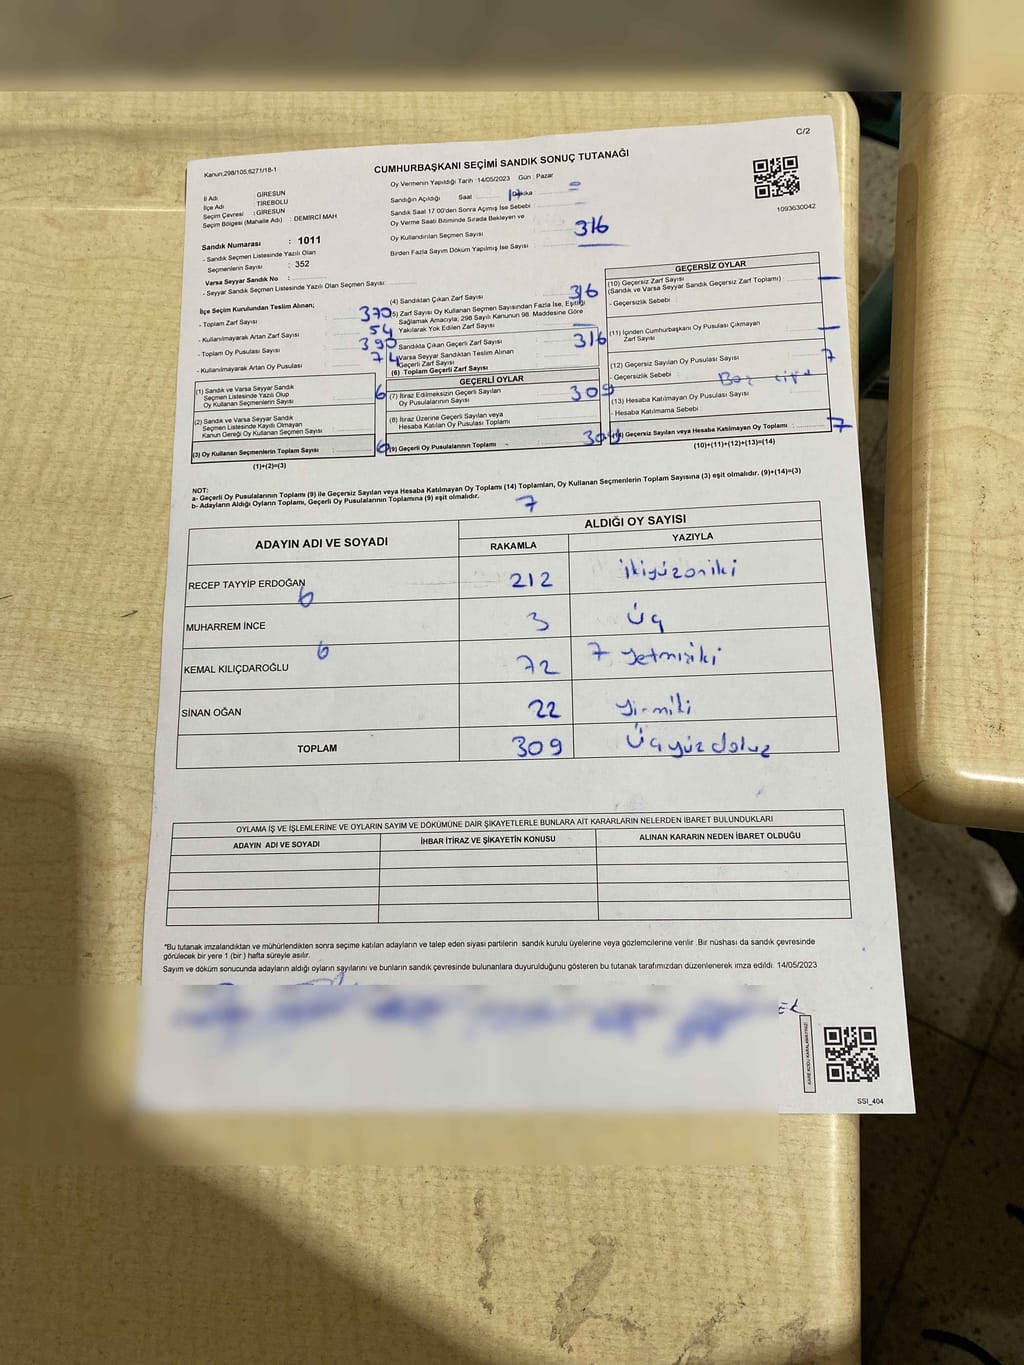 C/2
Kanun,298/105,6271/18-1
CUMHURBAŞKANI SEÇİMİ SANDIK SONUÇ TUTANAĞI
Oy Vermenin Yapıldığı Tarih : 14/05/2023 Gün : Pazar
İl Adı : GİRESUN
İlçe Adı : TİREBOLU
Seçim Çevresi : GİRESUN
Seçim Bölgesi (Mahalle Adı) : DEMİRCİ MAH
Sandığın Açıldığı Saat Dakika
Sandık Saat 17.00'den Sonra Açımış İse Sebebi
Oy Verme Saati Bitiminde Sırada Bekleyen ve
Oy Kullandırılan Seçmen Sayısı : 316
Birden Fazla Sayım Döküm Yapılmış İse Sayısı
1093630042
Sandık Numarası : 1011
- Sandık Seçmen Listesinde Yazılı Olan
Seçmenlerin Sayısı : 352
Varsa Seyyar Sandık No :
- Seyyar Sandık Seçmen Listesinde Yazılı Olan Seçmen Sayısı :
İlçe Seçim Kurulundan Teslim Alınan;
- Toplam Zarf Sayısı : 370
- Kullanılmayarak Artan Zarf Sayısı : 54
- Toplam Oy Pusulası Sayısı : 390
- Kullanılmayarak Artan Oy Pusulası : 74
(1) Sandık ve Varsa Seyyar Sandık
Seçmen Listesinde Yazılı Olup
Oy Kullanan Seçmenlerin Sayısı : 6
(2) Sandık ve Varsa Seyyar Sandık
Seçmen Listesinde Kayıtlı Olmayan
Kanun Gereği Oy Kullanan Seçmen Sayısı
(3) Oy Kullanan Seçmenlerin Toplam Sayısı : 6
(1)+(2)=(3)
(4) Sandıktan Çıkan Zarf Sayısı : 316
(5) Zarf Sayısı Oy Kullanan Seçmen Sayısından Fazla İse, Eşitliği
Sağlamak Amacıyla, 298 Sayılı Kanunun 98. Maddesine Göre
Yakılarak Yok Edilen Zarf Sayısı
Sandıkta Çıkan Geçerli Zarf Sayısı : 316
Varsa Seyyar Sandıktan Teslim Alınan
Geçerli Zarf Sayısı
(6) Toplam Geçerli Zarf Sayısı
GEÇERLİ OYLAR
(7) İtiraz Edilmeksizin Geçerli Sayılan
Oy Pusulalarının Sayısı : 309
(8) İtiraz Üzerine Geçerli Sayılan veya
Hesaba Katılan Oy Pusulası Toplamı
(9) Geçerli Oy Pusulalarının Toplamı : 309
GEÇERSİZ OYLAR
(10) Geçersiz Zarf Sayısı
(Sandık ve Varsa Seyyar Sandık Geçersiz Zarf Toplamı) : —
- Geçersizlik Sebebi :
(11) İçinden Cumhurbaşkanı Oy Pusulası Çıkmayan
Zarf Sayısı : —
(12) Geçersiz Sayılan Oy Pusulası Sayısı : 7
- Geçersizlik Sebebi :
(13) Hesaba Katılmayan Oy Pusulası Sayısı :
- Hesaba Katılmama Sebebi :
(14) Geçersiz Sayılan veya Hesaba Katılmayan Oy Toplamı : 7
(10)+(11)+(12)+(13)=(14)
NOT:
a- Geçerli Oy Pusulalarının Toplamı (9) ile Geçersiz Sayılan veya Hesaba Katılmayan Oy Toplamı (14) Toplamları, Oy Kullanan Seçmenlerin Toplam Sayısına (3) eşit olmalıdır. (9)+(14)=(3)
b- Adayların Aldığı Oyların Toplamı, Geçerli Oy Pusulalarının Toplamına (9) eşit olmalıdır.
7
ADAYIN ADI VE SOYADI ALDIĞI OY SAYISI
RAKAMLA YAZIYLA
RECEP TAYYİP ERDOĞAN 212 ikiyüzoniki
6
MUHARREM İNCE 3 Üç
6
KEMAL KILIÇDAROĞLU 72 7 yetmişiki
SİNAN OĞAN 22 yirmiiki
TOPLAM 309 Üçyüzdokuz
OYLAMA İŞ VE İŞLEMLERİNE VE OYLARIN SAYIM VE DÖKÜMÜNE DAİR ŞİKAYETLERLE BUNLARA AİT KARARLARIN NELERDEN İBARET BULUNDUKLARI
ADAYIN ADI VE SOYADI İHBAR İTİRAZ VE ŞİKAYETİN KONUSU ALINAN KARARIN NEDEN İBARET OLDUĞU
*Bu tutanak imzalandıktan ve mühürlendikten sonra seçime katılan adayların ve talep eden siyasi partilerin sandık kurulu üyelerine veya gözlemcilerine verilir .Bir nüshası da sandık çevresinde
görülecek bir yere 1 (bir ) hafta süreyle asılır.
Sayım ve döküm sonucunda adayların aldığı oyların sayılarını ve bunların sandık çevresinde bulunanlara duyurulduğunu gösteren bu tutanak tarafımızdan düzenlenerek imza edildi. 14/05/2023
KARE KODU KARALAMAYINIZ!
SSI_404